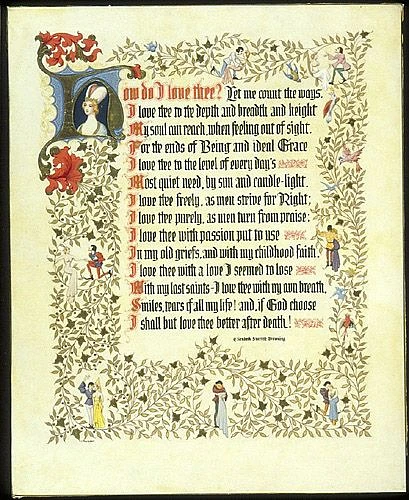 How do I love thee? Let me count the ways.
I love thee to the depth and breadth and height
My soul can reach, when feeling out of sight.
For the ends of Being and ideal Grace
I love thee to the level of every day's
Most quiet need, by sun and candle-light.
I love thee freely, as men strive for Right;
I love thee purely, as men turn from praise;
I love thee with passion put to use
In my old griefs, and with my childhood faith.
I love thee with a love I seemed to lose
With my last saints - I love thee with my own breath,
Smiles, tears of all my life! and, if God choose
I shall but love thee better after death!
Elizabeth Barrett Browning